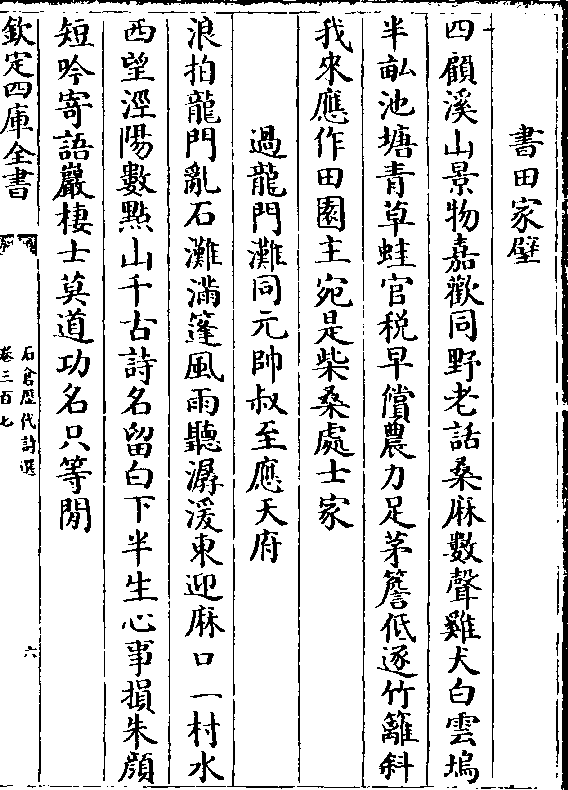 書田家壁
四顧溪山景物嘉歡同野老話桑麻數聲雞犬白雲塢
半畝池塘青草蛙官稅早償農力足茅簷低逐竹籬斜
我來應作田園主宛是柴桑處士家
過龍門灘同元帥叔至應天府
浪拍龍門亂石灘滿篷風雨聽潺湲東迎麻口一村水
西望涇陽數點山千古詩名留白下半生心事損朱顏
短吟寄語巖棲士莫道功名只等閒
欽定四庫全書
石倉歷代詩選
卷三百七
六